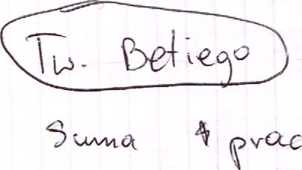 Tw. Betiego
Suma prac